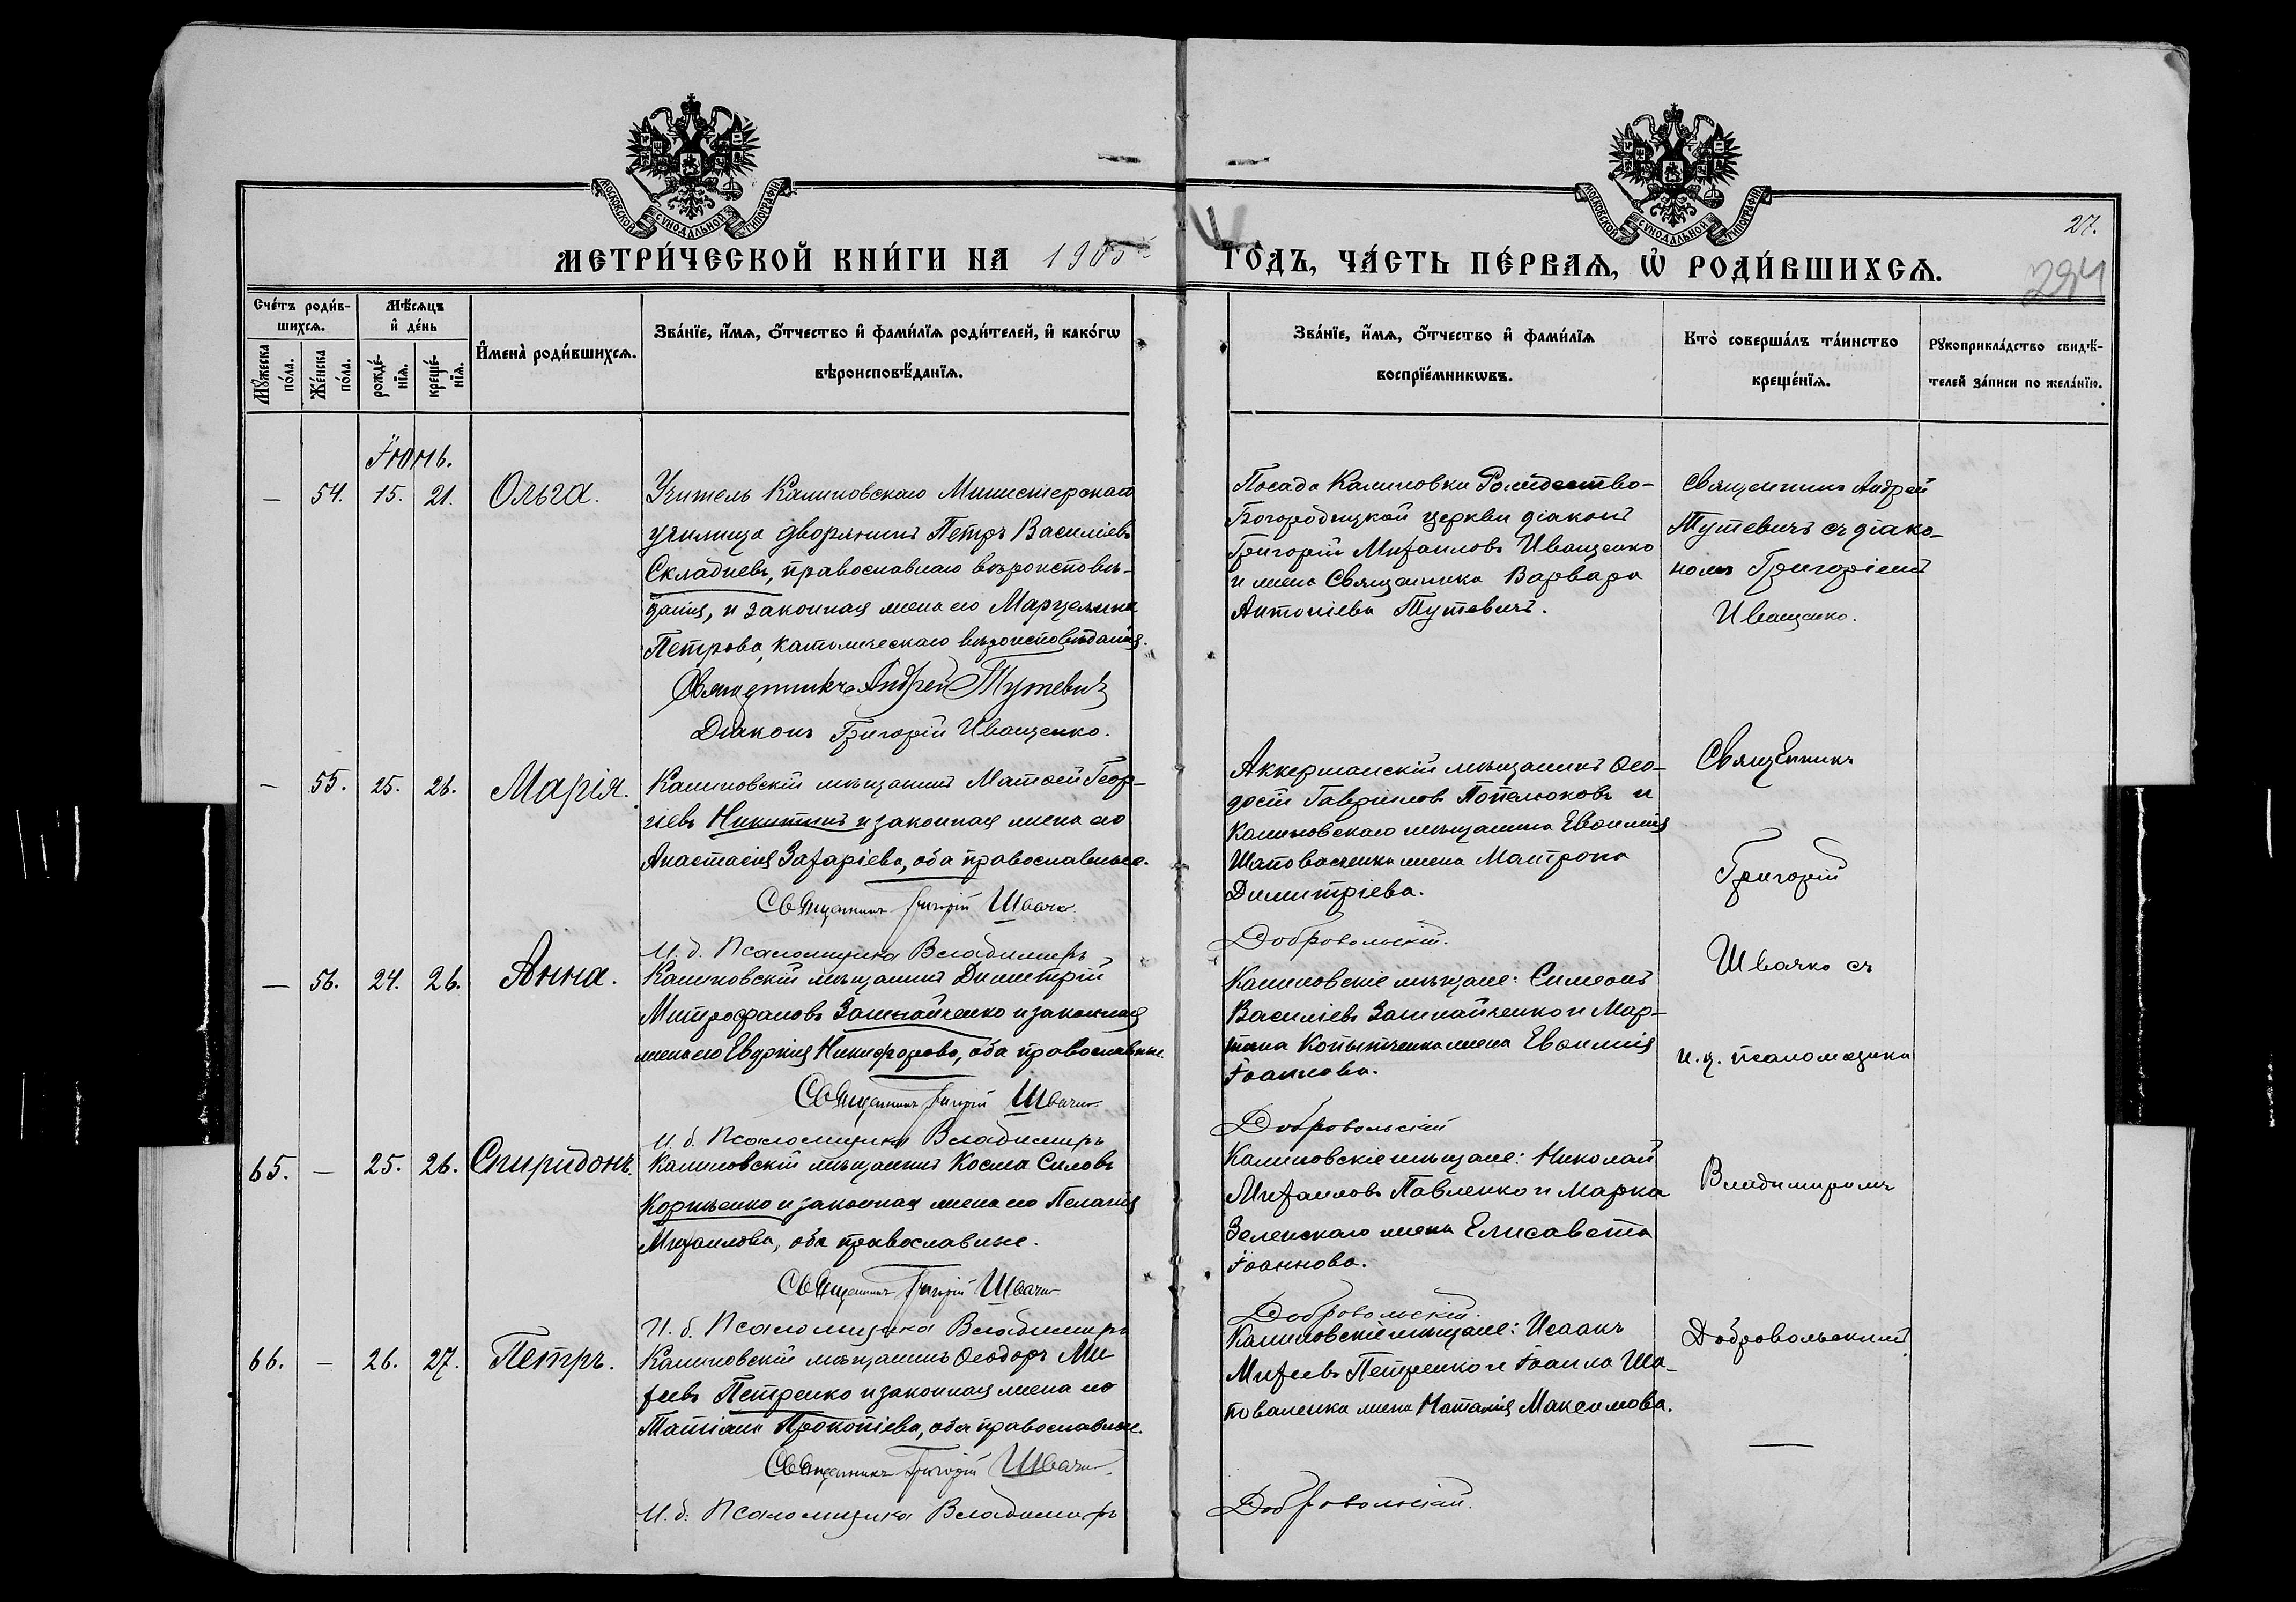 МОСКОВСКОЙ СѴНОДАЛЬНОЙ ТИПОГРАФІИ
МОСКОВСКОЙ СѴНОДАЛЬНОЙ ТИПОГРАФІИ
27.
МЕТРИ́ЧЕСКОЙ КНИ́ГИ НА 1905
ГО́ДЪ, ЧА́СТЬ ПЕ́РВАЯ, Ѡ҆ РОДИ́ВШИХСЯ.
284
Сче́тъ роди́в-
шихся.
Мѣ́сяцъ
и҆ де́нь
Мꙋ́жеска
по́ла.
Же́нска
по́ла.
рожде́-
нїя.
креще́-
нїя.
И҆мена̀ роди́вшихся.
Зва́нїе, и҆́мя, ѻ҆́тчество и҆ фами́лїя роди́телей, и҆ како́гѡ
вѣроисповѣ́данїя.
Зва́нїе, и҆́мя, ѻ҆́тчество и҆ фами́лїя
воспрїе́мникѡвъ.
Кто̀ соверша́лъ та́инство
креще́нїя.
Рꙋкоприкла́дство свидѣ́-
телей за́писи по жела́нїю.
Іюнь.
— 54. 15. 21. Ольга.
Учитель Калиновскаго Министерскаго
училища дворянинъ Петръ Василіевъ
Складневъ, православнаго вѣроисповѣ-
данія, и законная жена его Марцелина
Петрова, католическаго вѣроисповѣданія.
Священникъ Андрей Тутевичъ
Діаконъ Григорій Иващенко.
Посада Калиновки Рождество-
Богородицкой церкви діаконъ
Григорій Михаиловъ Иващенко
и жена Священника Варвара
Антоніева Тутевичъ.
Священникъ Андрей
Тутевичъ съ діако-
номъ Григоріемъ
Иващенко.
— 55. 25. 26. Марія.
Калиновскій мѣщанинъ Матѳей Геор-
гіевъ Никитинъ и законная жена его
Анастасія Захаріева, оба православные.
Священникъ Григорій Швачко
И. д. Псаломщика Владимиръ
Аккерманскій мѣщанинъ Ѳео-
досій Гавріиловъ Попелюковъ и
Калиновскаго мѣщанина Евѳимія
Шаповаленка жена Матрона
Димитріева.
Добровольскій.
Священникъ
Григорій
Швачко съ
и. д. псаломщика
Владимиромъ
Добровольскимъ
— 56. 24. 26. Анна.
Калиновскій мѣщанинъ Димитрій
Митрофановъ и законная
жена его Евдокія Никифорова, оба православные.
Священникъ Григорій Швачко
И. д. Псаломщика Владимиръ
Калиновскіе мѣщане: Симеонъ
Василіевъ и Мар-
тина жена Евѳимія
Іоаннова.
Добровольскій
65. — 25. 26. Спиридонъ.
Калиновскій мѣщанинъ Косма Силовъ
Корніенко и законная жена его Пелагія
Михаилова, оба православные.
Священникъ Григорій Швачко
И. д. Псаломщика Владимиръ
Калиновскіе мѣщане: Николай
Михаиловъ Павленко и Марка
Зеленскаго жена Елисавета
Іоаннова.
Добровольскій.
66. — 26. 27. Петръ.
Калиновскій мѣщанинъ Ѳеодоръ Ми-
хеевъ Петренко и законная жена его
Татіана Прокопіева, оба православные.
Священникъ Григорій Швачко
И. д. Псаломщика Владимиръ
Калиновскіе мѣщане: Исаакъ
Михеевъ Петренко и Іоанна Ша-
поваленка жена Наталія Максимова.
Добровольскій.